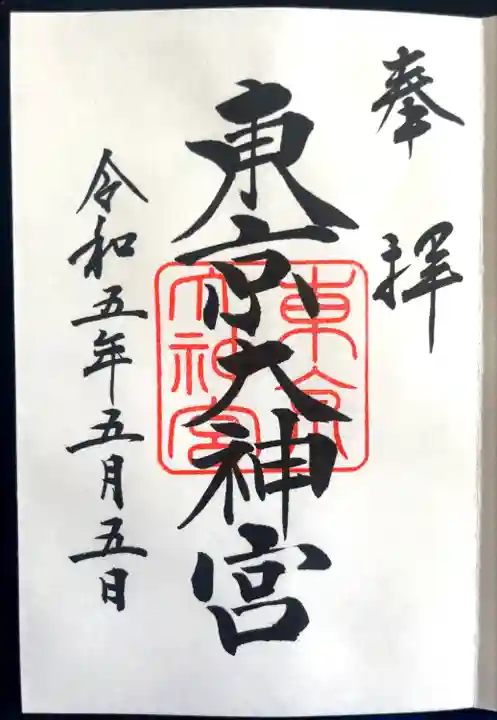 奉拝
東京大神宮
東京大神宮
令和五年五月五日